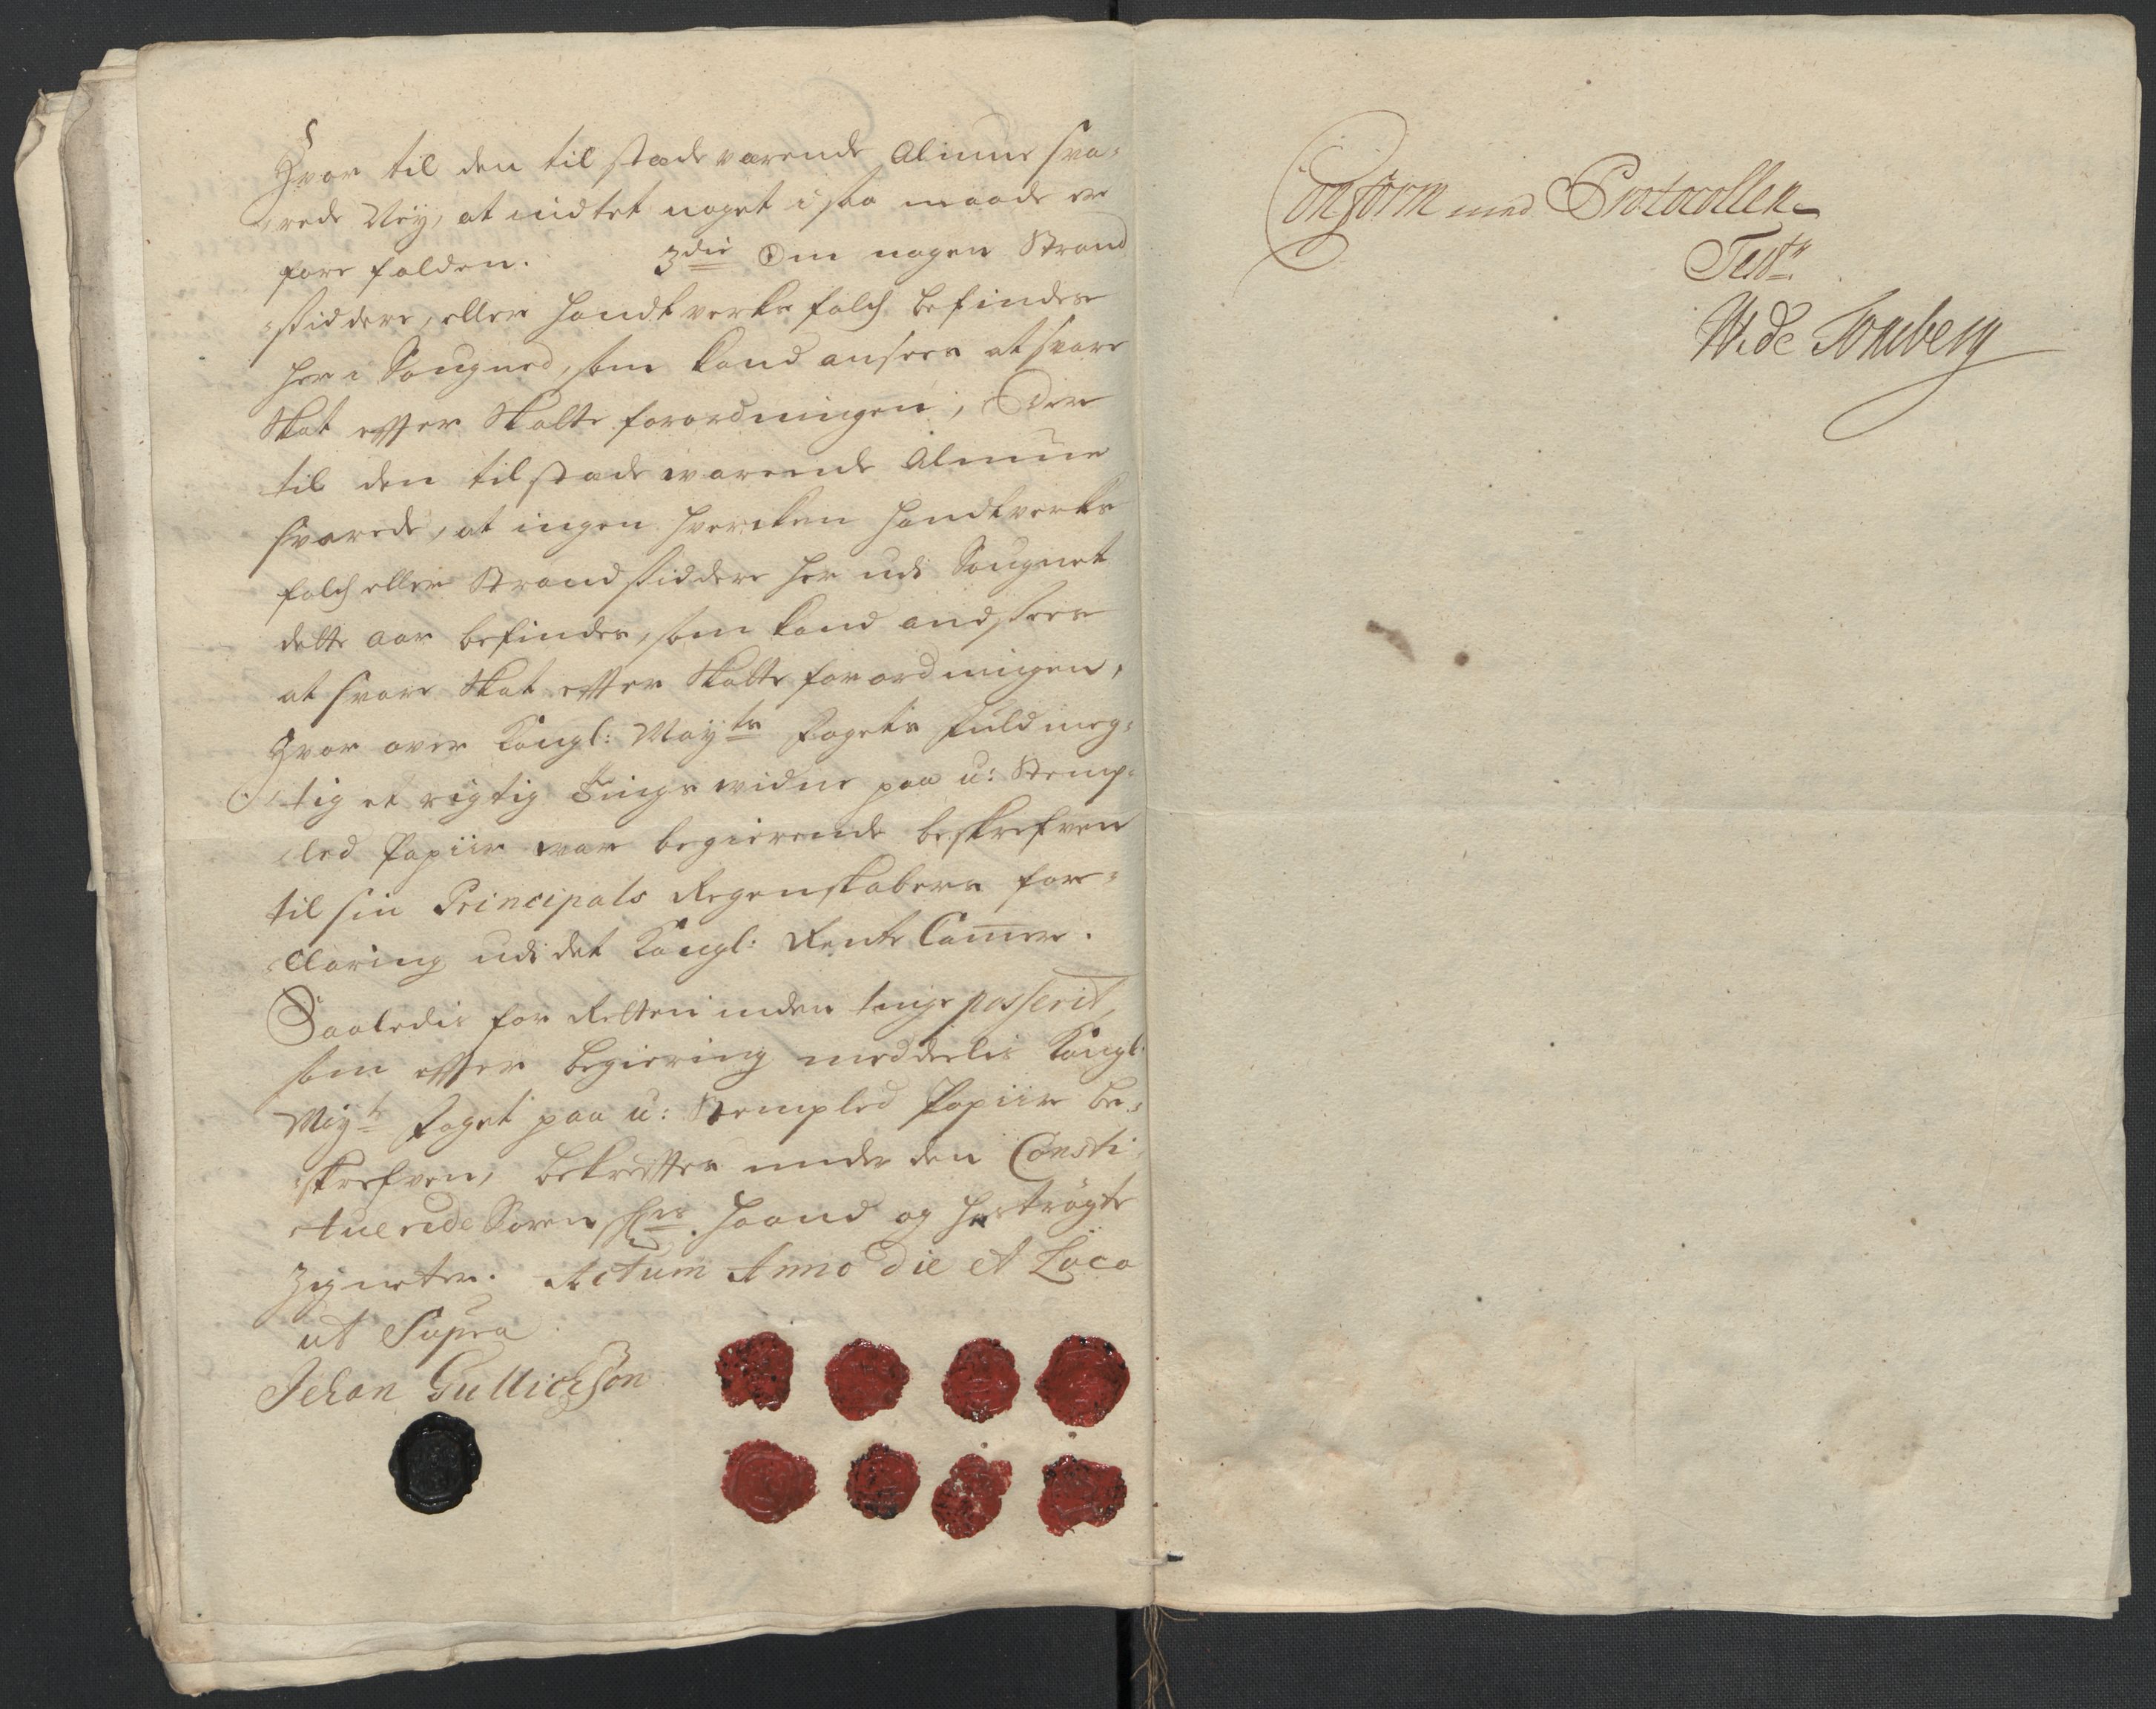 Hvor til den til stæde værende Almue sva-
rede Ney, at indtet noget i saa maade er
fore falden. 3die Om nogen Strand
siddere, eller Handtverks folch befindes
her i Sougned, som kand ansees at svare
Skat efter Skatte forordningen, Der
til den tilstæde wærende Almue
svarede, at ingen hvercken Handtverks
folch eller Strandsiddere her udi Sougnet
dette aar befindes, som kand andsees
at svare Skat efter Skatte forordningen,
Hvor over Kongl: Mayts Fogets Fuldmeg-
tig et rigtig Tings widne paa u: Stemp-
led Papiir war begierende beskrefven
til sin Principals Regenskabers for-
klaring udi det Kongl: Rente Camer.
Saaledis for Retten inden tinge passerit,
som efter begiering meddeelis Kongl:
Mayts Foget paa u: Stempled Papiir be-
skrefven, bekreftes under den Consti-
tuerede Soren Skrs. Haand og hoströgte
Zigneter. Actum Anno die et Loco
ut Supra
Jehan Gullichsøn
Conform med Protocollen
Test:
W. de Tonsberg